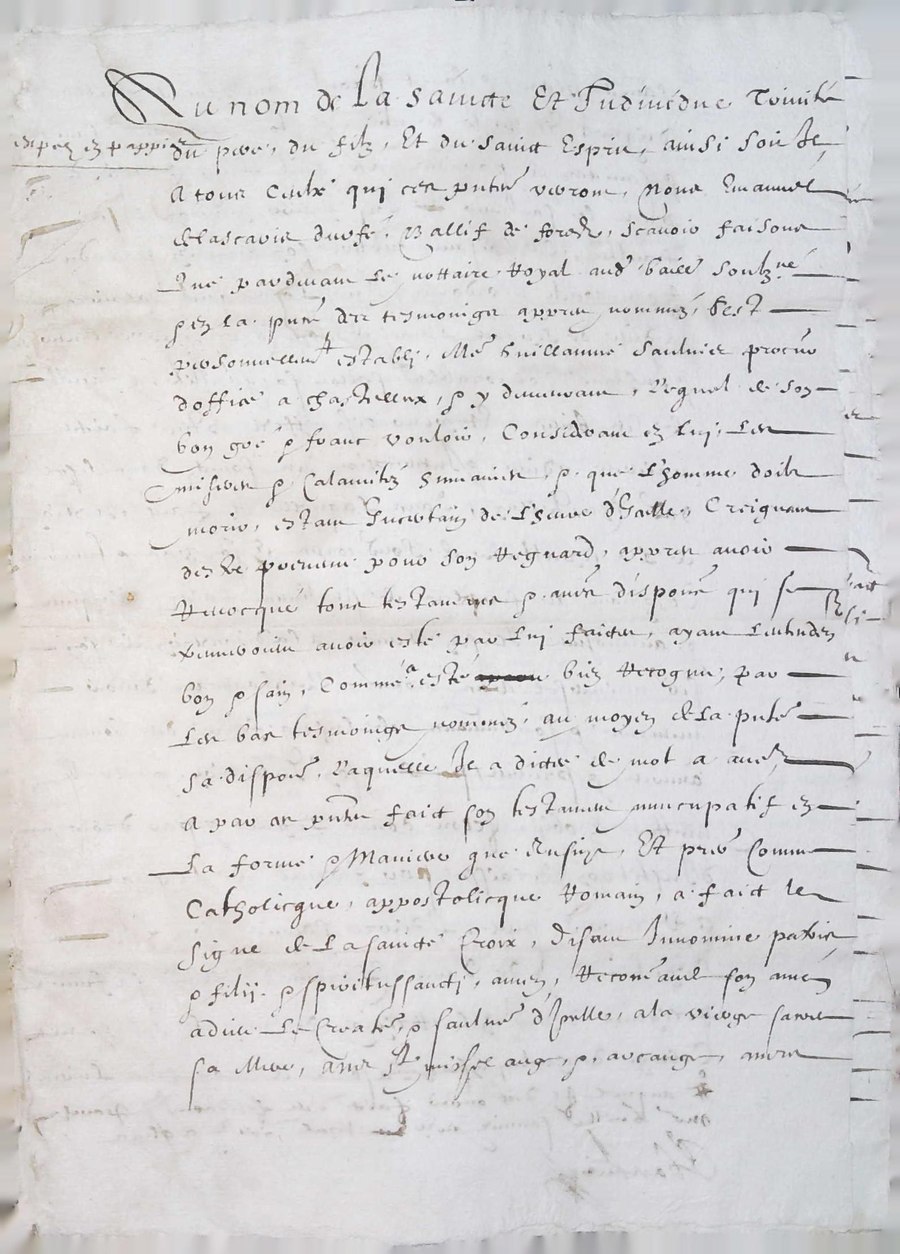 Au nom de La saincte Et Indivedue Trinité
expéé en pappier
du pere, du filz, Et du sainct Esprit, ainsi soit Il
A tous Ceulx qui ces pntes verront, Nous Emanuel
de lascaris durfé, Ballif de forestz, scavoir faisons
Que pardevant Le nottaire Royal aud baille soulzné
& en La pnce des tesmoings appres nommez, S'est
personnellemt establi, Me Guillaume Saulnier procur
doffice a chastelleux, & y demeurant, Lequel de son
bon gré & franc vouloir, Considerant en Lui, Les
miseres & Calamitez humaines, & que L'homme doibt
morir, estant Incertain de L'heure d'Icelle, Creignant
destre prevenu pour son Regnard, appres avoir
Revocqué tous testamens & aues dispones qui se
treuveroint avoir esté par Lui faictes, ayant L'entenden
bon & sain, Comme a esté bien Recognu, par
Les bas tesmoings nommez, au moyen de La pnte
sa dispone, Laquelle Il a dicte de mot a aue
A par ces pntes faict son testament nuncupatif en
La forme & Maniere que sensuyt, Et pre Comme
Catholicque, appostolicque Romain, a faict le
signe de La saincte Croix, disant In nomine patris
& filij & spiritussancti, amen, Recomandé son ame
a dieu Le Createur, & saulveur d'Icelle, a la vierge sacree
sa Mere, a mr St michel ange, & arcange, autre